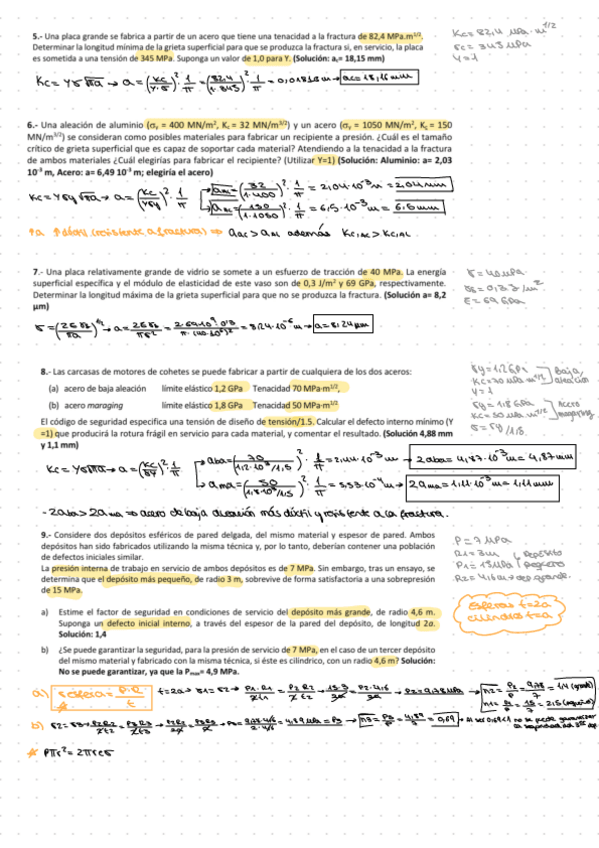 5.- Una placa grande se fabrica a partir de un acero que tiene una tenacidad a la fractura de 82,4 MPa.m¹/².
Determinar la longitud mínima de la grieta superficial para que se produzca la fractura si, en servicio, la placa
es sometida a una tensión de 345 MPa. Suponga un valor de 1,0 para Y. (Solución: a_c= 18,15 mm)
Kc = 82,4 MPa·m^1/2
σc = 345 MPa
Y = 1
Kc = Yσ√πa → a = (Kc/Y·σ)²·1/π = (82,4/1·345)²·1/π = 0,01815 m → ac = 18,15 mm
6.- Una aleación de aluminio (σy = 400 MN/m², Kc = 32 MN/m³/²) y un acero (σy = 1050 MN/m², Kc = 150
MN/m³/²) se consideran como posibles materiales para fabricar un recipiente a presión. ¿Cuál es el tamaño
crítico de grieta superficial que es capaz de soportar cada material? Atendiendo a la tenacidad a la fractura
de ambos materiales ¿Cuál elegirías para fabricar el recipiente? (Utilizar Y=1) (Solución: Aluminio: a= 2,03
10⁻³ m, Acero: a= 6,49 10⁻³ m; elegiría el acero)
Kc = Yσy√πa → a = (Kc/Yσy)²·1/π
aAL = (32/1·400)²·1/π = 2,04·10⁻³ m = 2,04 mm
aAC = (150/1·1050)²·1/π = 6,5·10⁻³ m = 6,5 mm
↑a ↑dúctil (resistente a fractura) ⇒ aAC > aAL además KcAC > KcAL
7.- Una placa relativamente grande de vidrio se somete a un esfuerzo de tracción de 40 MPa. La energía
superficial específica y el módulo de elasticidad de este vaso son de 0,3 J/m² y 69 GPa, respectivamente.
Determinar la longitud máxima de la grieta superficial para que no se produzca la fractura. (Solución a= 8,2
µm)
σ = 40 MPa
γs = 0,3 J/m²
E = 69 GPa
σ = (2Eγs/πa)^1/2 → a = 2Eγs/πσ² = 2·69·10⁹·0,3/π·(40·10⁶)² = 8,24·10⁻⁶ m → a = 8,24 µm
8.- Las carcasas de motores de cohetes se puede fabricar a partir de cualquiera de los dos aceros:
(a) acero de baja aleación límite elástico 1,2 GPa Tenacidad 70 MPa·m¹/²,
(b) acero maraging límite elástico 1,8 GPa Tenacidad 50 MPa·m¹/²
El código de seguridad especifica una tensión de diseño de tensión/1.5. Calcular el defecto interno mínimo (Y
=1) que producirá la rotura frágil en servicio para cada material, y comentar el resultado. (Solución 4,88 mm
y 1,1 mm)
σy = 1,2 GPa
Kc = 70 MPa m^1/2
Y = 1
Baja aleación
σy = 1,8 GPa
Kc = 50 MPa m^1/2
σ = σy/1,5
Acero maraging
Kc = Yσ√πa → a = (Kc/σY)²·1/π
aba = (70/(1,2·10³/1,5))²·1/π = 2,44·10⁻³ m → 2aba = 4,87·10⁻³ m = 4,87 mm
ama = (50/(1,8·10³/1,5))²·1/π = 5,53·10⁻⁴ m → 2ama = 1,11·10⁻³ m = 1,11 mm
- 2aba > 2ama ⇒ acero de baja aleación más dúctil y resistente a la fractura.
9.- Considere dos depósitos esféricos de pared delgada, del mismo material y espesor de pared. Ambos
depósitos han sido fabricados utilizando la misma técnica y, por lo tanto, deberían contener una población
de defectos iniciales similar.
La presión interna de trabajo en servicio de ambos depósitos es de 7 MPa. Sin embargo, tras un ensayo, se
determina que el depósito más pequeño, de radio 3 m, sobrevive de forma satisfactoria a una sobrepresión
de 15 MPa.
P = 7 MPa
R1 = 3m
P1 = 15 MPa
depósito pequeño
R2 = 4,6 m → dep. grande.
esferas t=2a
cilindros t=a
a) Estime el factor de seguridad en condiciones de servicio del depósito más grande, de radio 4,6 m.
Suponga un defecto inicial interno, a través del espesor de la pared del depósito, de longitud 2a.
Solución: 1,4
b) ¿Se puede garantizar la seguridad, para la presión de servicio de 7 MPa, en el caso de un tercer depósito
del mismo material y fabricado con la misma técnica, si éste es cilíndrico, con un radio 4,6 m? Solución:
No se puede garantizar, ya que la Pmax= 4,9 MPa.
a) σesfera = P·R/t t=2a → σ1 = σ2 → P1·R1/2t1 = P2·R2/2t2 → 15·3 = P2·4,6 → P2 = 9,78 MPa → n2 = P2/P = 9,78/7 = 1,4 (grande)
n1 = P1/P = 15/7 = 2,15 (pequeño)
b) σ2 = σ3 → P3 = 9,78·4,6/2·4,6 = 4,89 MPa = P3 → n3 = P3/P = 4,89/7 = 0,69 → Al ser 0,69<1 no se puede garantizar la seguridad del 3er dep.
* Pπr² = 2πrtσ